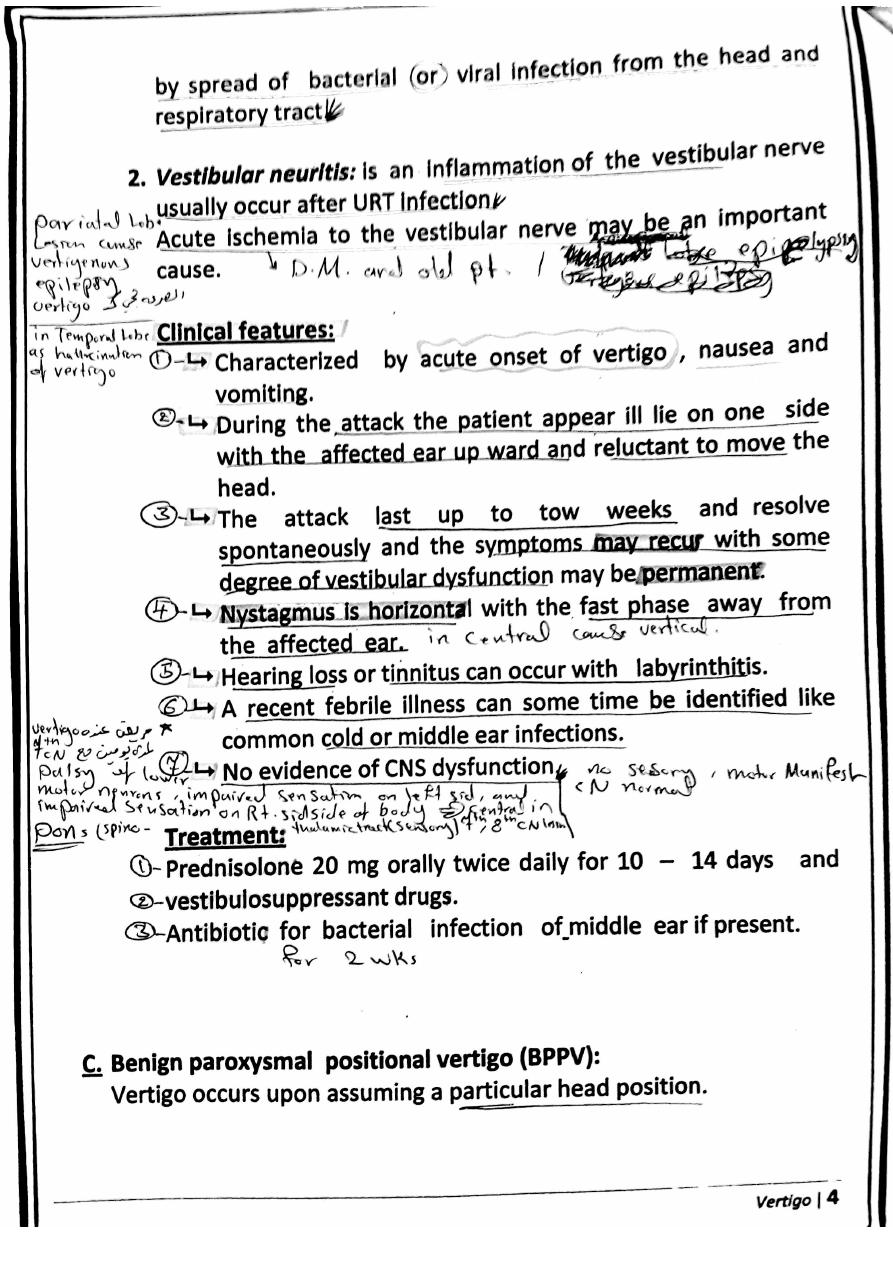 by spread of bacterial (or) viral infection from the head and
respiratory tract
2. Vestibular neuritis: is an inflammation of the vestibular nerve
usually occur after URT infection
Acute ischemia to the vestibular nerve may be an important
cause. D.M. and old pt. /
Pariatal Lob.
Lesion cause
vertigenous
epilepsy
vertigo
in Temporal Lobe
as hallucination
of vertigo
Clinical features:
①-↳ Characterized by acute onset of vertigo , nausea and
vomiting.
②-↳ During the attack the patient appear ill lie on one side
with the affected ear up ward and reluctant to move the
head.
③-↳ The attack last up to tow weeks and resolve
spontaneously and the symptoms may recur with some
degree of vestibular dysfunction may be permanent.
④-↳ Nystagmus is horizontal with the fast phase away from
the affected ear. in central cause vertical.
⑤-↳ Hearing loss or tinnitus can occur with labyrinthitis.
⑥-↳ A recent febrile illness can some time be identified like
common cold or middle ear infections.
⑦-↳ No evidence of CNS dysfunction, no sesory, motor Manifest
CN normal
* مريض عنده vertigo
palsy of lower
motor neurons, impaired sensation on left sid, and
impaired sensation on Rt. sidside of body central in
Pons (spino-thalamic track sensory) 7th, 8th CN
Treatment:
①-Prednisolone 20 mg orally twice daily for 10 – 14 days and
②-vestibulosuppressant drugs.
③-Antibiotic for bacterial infection of middle ear if present.
for 2 wks
C. Benign paroxysmal positional vertigo (BPPV):
Vertigo occurs upon assuming a particular head position.
Vertigo | 4